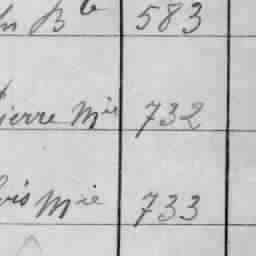 Bte 583
ierre Mie 732
Mie 733